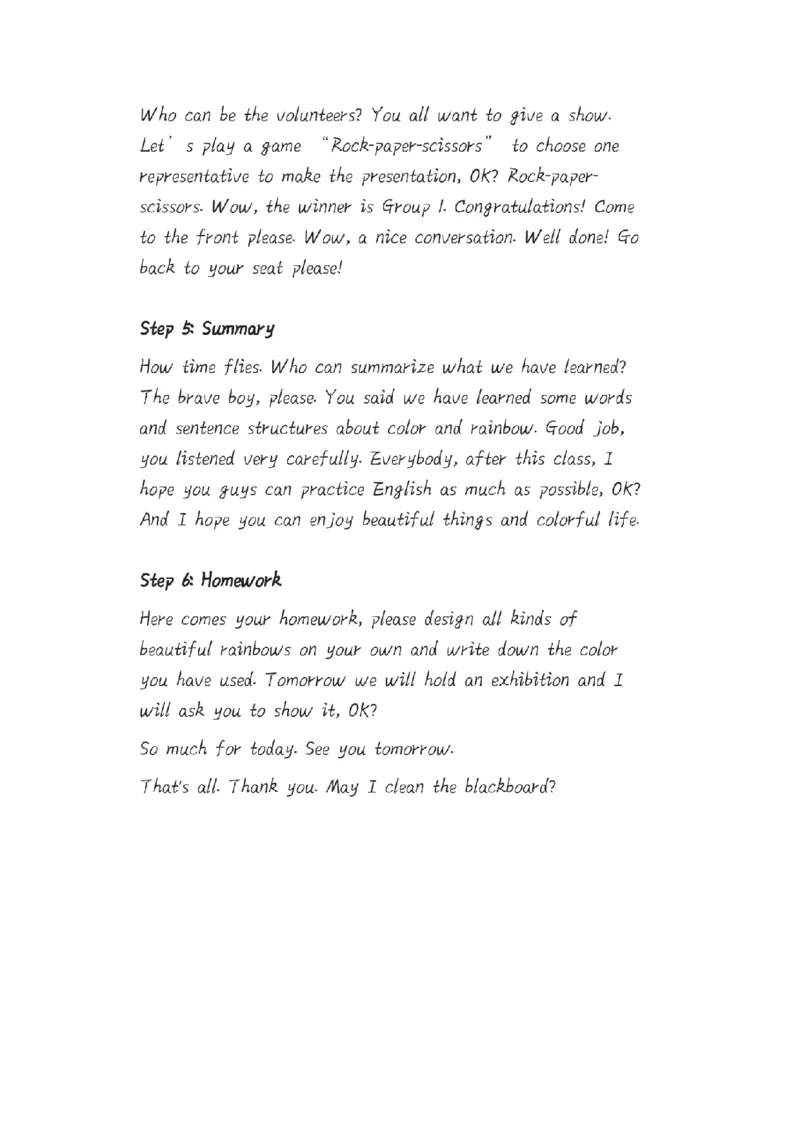 Who can be the volunteers? You all want to give a show.
Let’s play a game “Rock-paper-scissors” to choose one
representative to make the presentation, OK? Rock-paper-
scissors. Wow, the winner is Group 1. Congratulations! Come
to the front please. Wow, a nice conversation. Well done! Go
back to your seat please!
Step 5: Summary
How time flies. Who can summarize what we have learned?
The brave boy, please. You said we have learned some words
and sentence structures about color and rainbow. Good job,
you listened very carefully. Everybody, after this class, I
hope you guys can practice English as much as possible, OK?
And I hope you can enjoy beautiful things and colorful life.
Step 6: Homework
Here comes your homework, please design all kinds of
beautiful rainbows on your own and write down the color
you have used. Tomorrow we will hold an exhibition and I
will ask you to show it, OK?
So much for today. See you tomorrow.
That's all. Thank you. May I clean the blackboard?